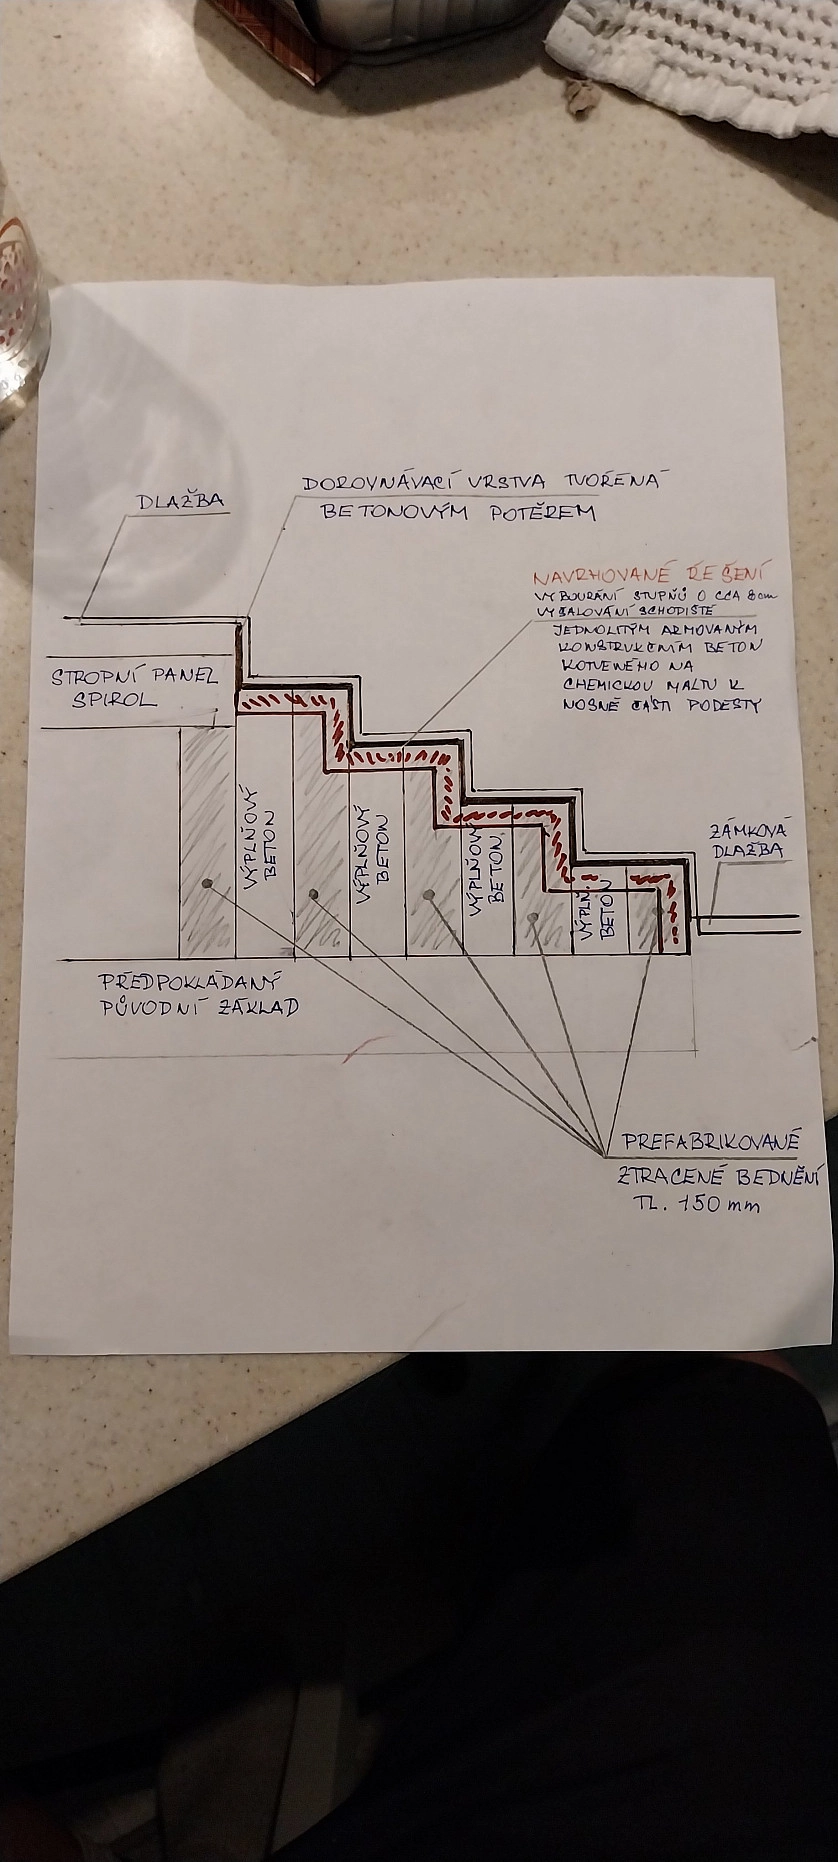 DLAŽBA
DOROVNÁVACÍ VRSTVA TVOŘENÁ
BETONOVÝM POTĚREM
NAVRHOVANÉ ŘEŠENÍ
VYBOURÁNÍ STUPŇŮ O CCA 8cm
VYŠALOVÁNÍ SCHODIŠTĚ
JEDNOLITÝM ARMOVANÝM
KONSTRUKČNÍM BETON
KOTVENÉHO NA
CHEMICKOU MALTU K
NOSNÉ ČÁSTI PODESTY
STROPNÍ PANEL
SPIROL
VÝPLŇOVÝ
BETON
VÝPLŇOVÝ
BETON
VÝPLŇOVÝ
BETON
VÝPLŇ.
BETON
ZÁMKOVÁ
DLAŽBA
PŘEDPOKLÁDANÝ
PŮVODNÍ ZÁKLAD
PREFABRIKOVANÉ
ZTRACENÉ BEDNĚNÍ
TL. 150 mm